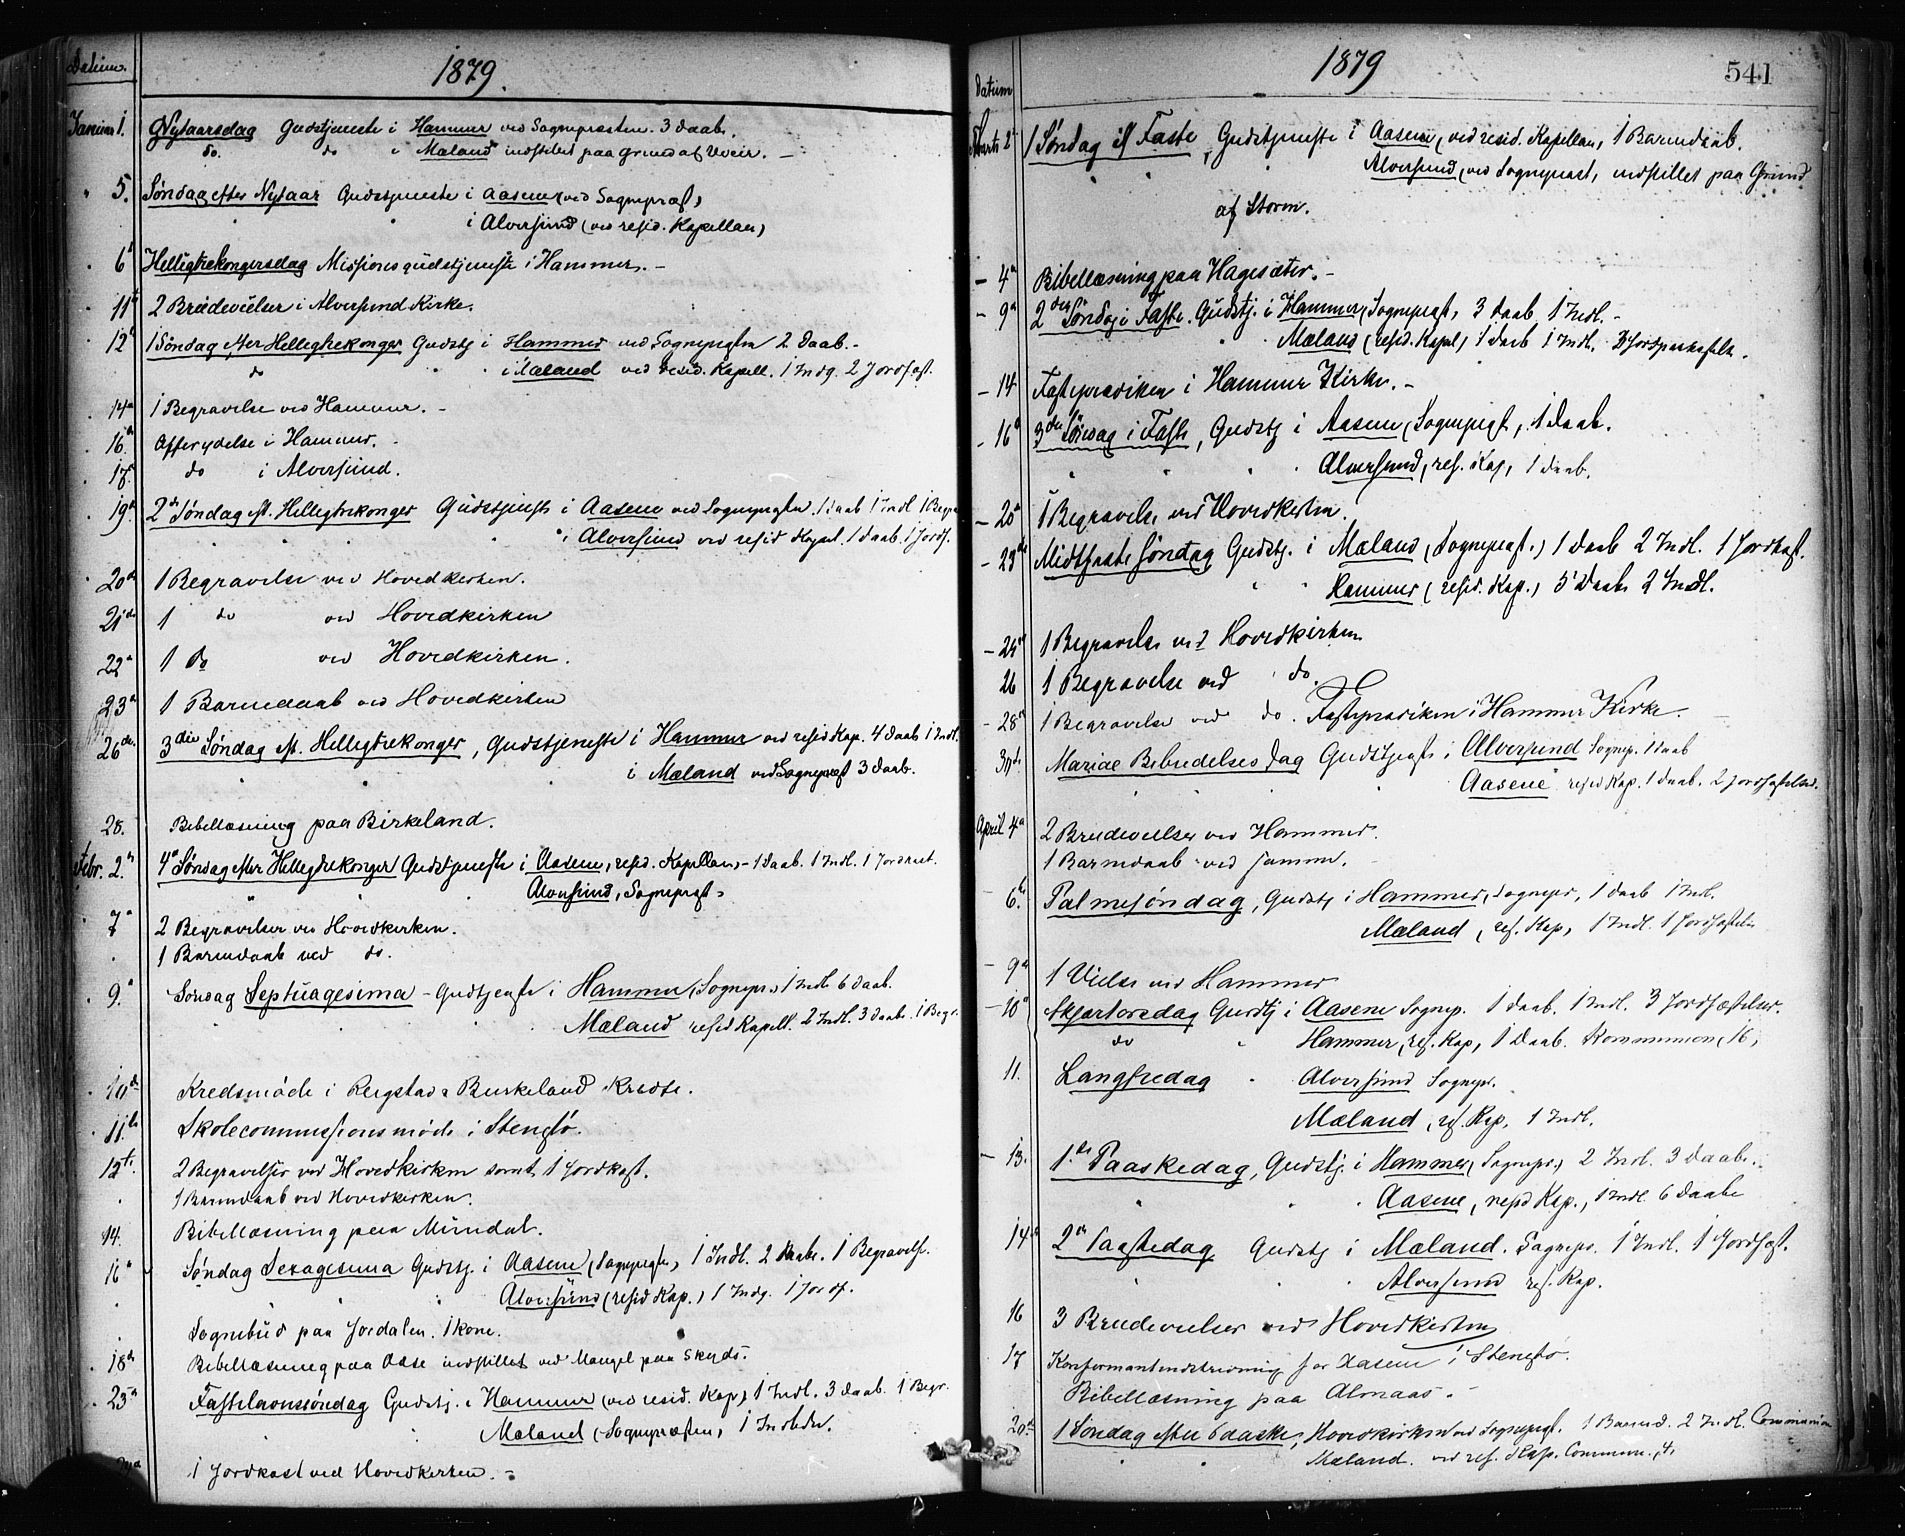 Datum.
1879.
Januar 1. Nytaarsdag Gudstjeneste i Hammer ved Sognepræsten. 3 Daab.
do. do i Mæland indstillet paa grund af Uveir. —
" 5. Søndag efter Nytaar Gudstjeneste i Aasene (ved Sognepræst)
i Alversund (ved resid. Kapellan)
6 Helligtrekongersdag Missionsgudstjeneste i Hammer. —
11 2 Brudevielser i Alversund Kirke.
12 1 Søndag efter Helligtrekonger Gudstj i Hammer ved Sognepresten 2 Daab. -
do " i Mæland ved resid. Kapell. 1 Indg. 2 Jordfæst.
14 1 Begravelse ved Hammer. -
16 Offerydelse i Hammer.
17. do i Alversund.
19 2 Søndag eft. Helligtrekonger Gudstjeneste i Aasene ved Sognepresten 1 Daab 1 Indl 1 Begr
" i Alversund ved resid Kapel. 1 Daab. 1 Jordf.
20 1 Begravelse ved Hovedkirken.
21 1 do ved Hovedkirken
22 1 do ved Hovedkirken.
23 1 Barnedaab ved Hovedkirken
26 3die Søndag eft. Helligtrekonger, Gudstjeneste i Hammer ved resid Kap. 4 Daab 1 Indl.
i Mæland ved Sognepræst 3 Daab.
28. Bibellæsning paa Birkeland.
Febr. 2. 4 Søndag efter Helligtrekonger Gudstjeneste i Aasene, resid. Kapellan, - 1 Daab. 1 Indl. 1 Jordkast.
Alversund, Sognepræst.
7 2 Begravelser ved Hovedkirken.
1 Barnedaab ved do.
9. Søndag Septuagesima - Gudtjeneste i Hammer (Sognepr.) 1 Indl 6 Daab.
Mæland resid Kapell. 2 Indl. 3 Daab. 1 Begr.
10 Kredsmøde i Birkeland Kredse.
11. Skolecommissionsmøde i Stensø.
12 2 Begravelser ved Hovedkirken samt 1 Jordkast.
1 Barnedaab ved Hovedkirken.
14. Bibellæsning paa Mundal.
16 Søndag Sexagesima Gudstj. i Aasene (Sognepræst), 1 Indl. 2 Daab. 1 Begravelse.
Alversund (resid Kap.) 1 Indg. 1 Jordf.
Sognebud paa Jordalen. 1 Kone.
18 Bibellæsning paa Aase indstillet ved Mangel paa Skyds.
23 Fastelavnssøndag Gudstj. i Hammer (ved resid. Kap), 1 Indl. 3 Daab. 1 Begr.
Mæland (Sognepræsten), 1 Indledn.
1 Jordkast ved Hovedkirken. -
Datum
1879
541
Marts 2 1 Søndag i Faste, Gudstjeneste i Aasene, (ved resid. Kapellan, 1 Barnedaab.
" Alversund, (ved Sognepræst, indstillet paa Grund
af Storm.
- 4 Bibellæsning paa Hagesæter. -
- 9 2 den Søndag i Faste. Gudstj. i Hammer (Sognepræst, 3 Daab 1 Indl. -
" Mæland (resid. Kapel, 1 Daab 1 Indl. 3 Jordpaakastelse.
- 14 Fasteprædiken i Hammer Kirke. -
- 16 3 die Søndag i Faste, Gudstj i Aasene (Sognepræst, 1 Daab.
" Alversund, res. Kap, 1 Daab.
- 20 1 Begravelse ved Hovedkirken.
- 23 Midtfaste Søndag Gudstj. i Mæland (Sognepræst.) 1 Daab 2 Indl. 1 Jordkast.
" Hammer (resid. Kap.) 5 Daab 2 Indl.
- 25 1 Begravelse ved Hovedkirken
26 1 Begravelse ved do.
- 28 1 Begravelse ved do. Fasteprædiken i Hammer Kirke. —
30 Mariæ Bebudelses Dag Gudstjeneste i Alversund Sognep. 1 Daab
Aasene resid Kap. 1 Daab. 2 Jordfæstelser.
April 4 2 Brudevielser ved Hammer.
1 Barnedaab ved samme.
- 6 Palmesøndag, Gudstj i Hammer, Sognepr, 1 Daab 1 Indl.
Mæland, res. Kap, 1 Indl. 1 Jordfæstelse
- 9 1 Vielse ved Hammer
- 10 Skjærtorsdag Gudstj i Aasene Sognep. 1 Daab. 1 Indl. 3 Jordfæstelser.
do " Hammer, res. Kap, 1 Daab. Kommunion, 16,
11. Langfredag " Alversund Sognepr.
Mæland, res. Kap. 1 Indl.
- 13. 1. Paaskedag, Gudstj. i Hammer (Sognepr.) 2 Indl. 3 Daab.
" Aasene, resid Kap., 1 Indl. 6 Daab
14 2 Paaskedag Gudstj i Mæland. Sognepr. 1 Indl. 1 Jordfæst.
" Alversund res. Kap.
16 3 Brudevielser ved Hovedkirken
17 Konfirmantindskrivning for Aasene i Stensø.
Bibellæsning paa Almaas. -
20 1 Søndag efter Paaske, Hovedkirken ved Sognepræst. 1 Barned. 2 Indl. Communion
Mæland. ved res. Kap. Commun. 4.